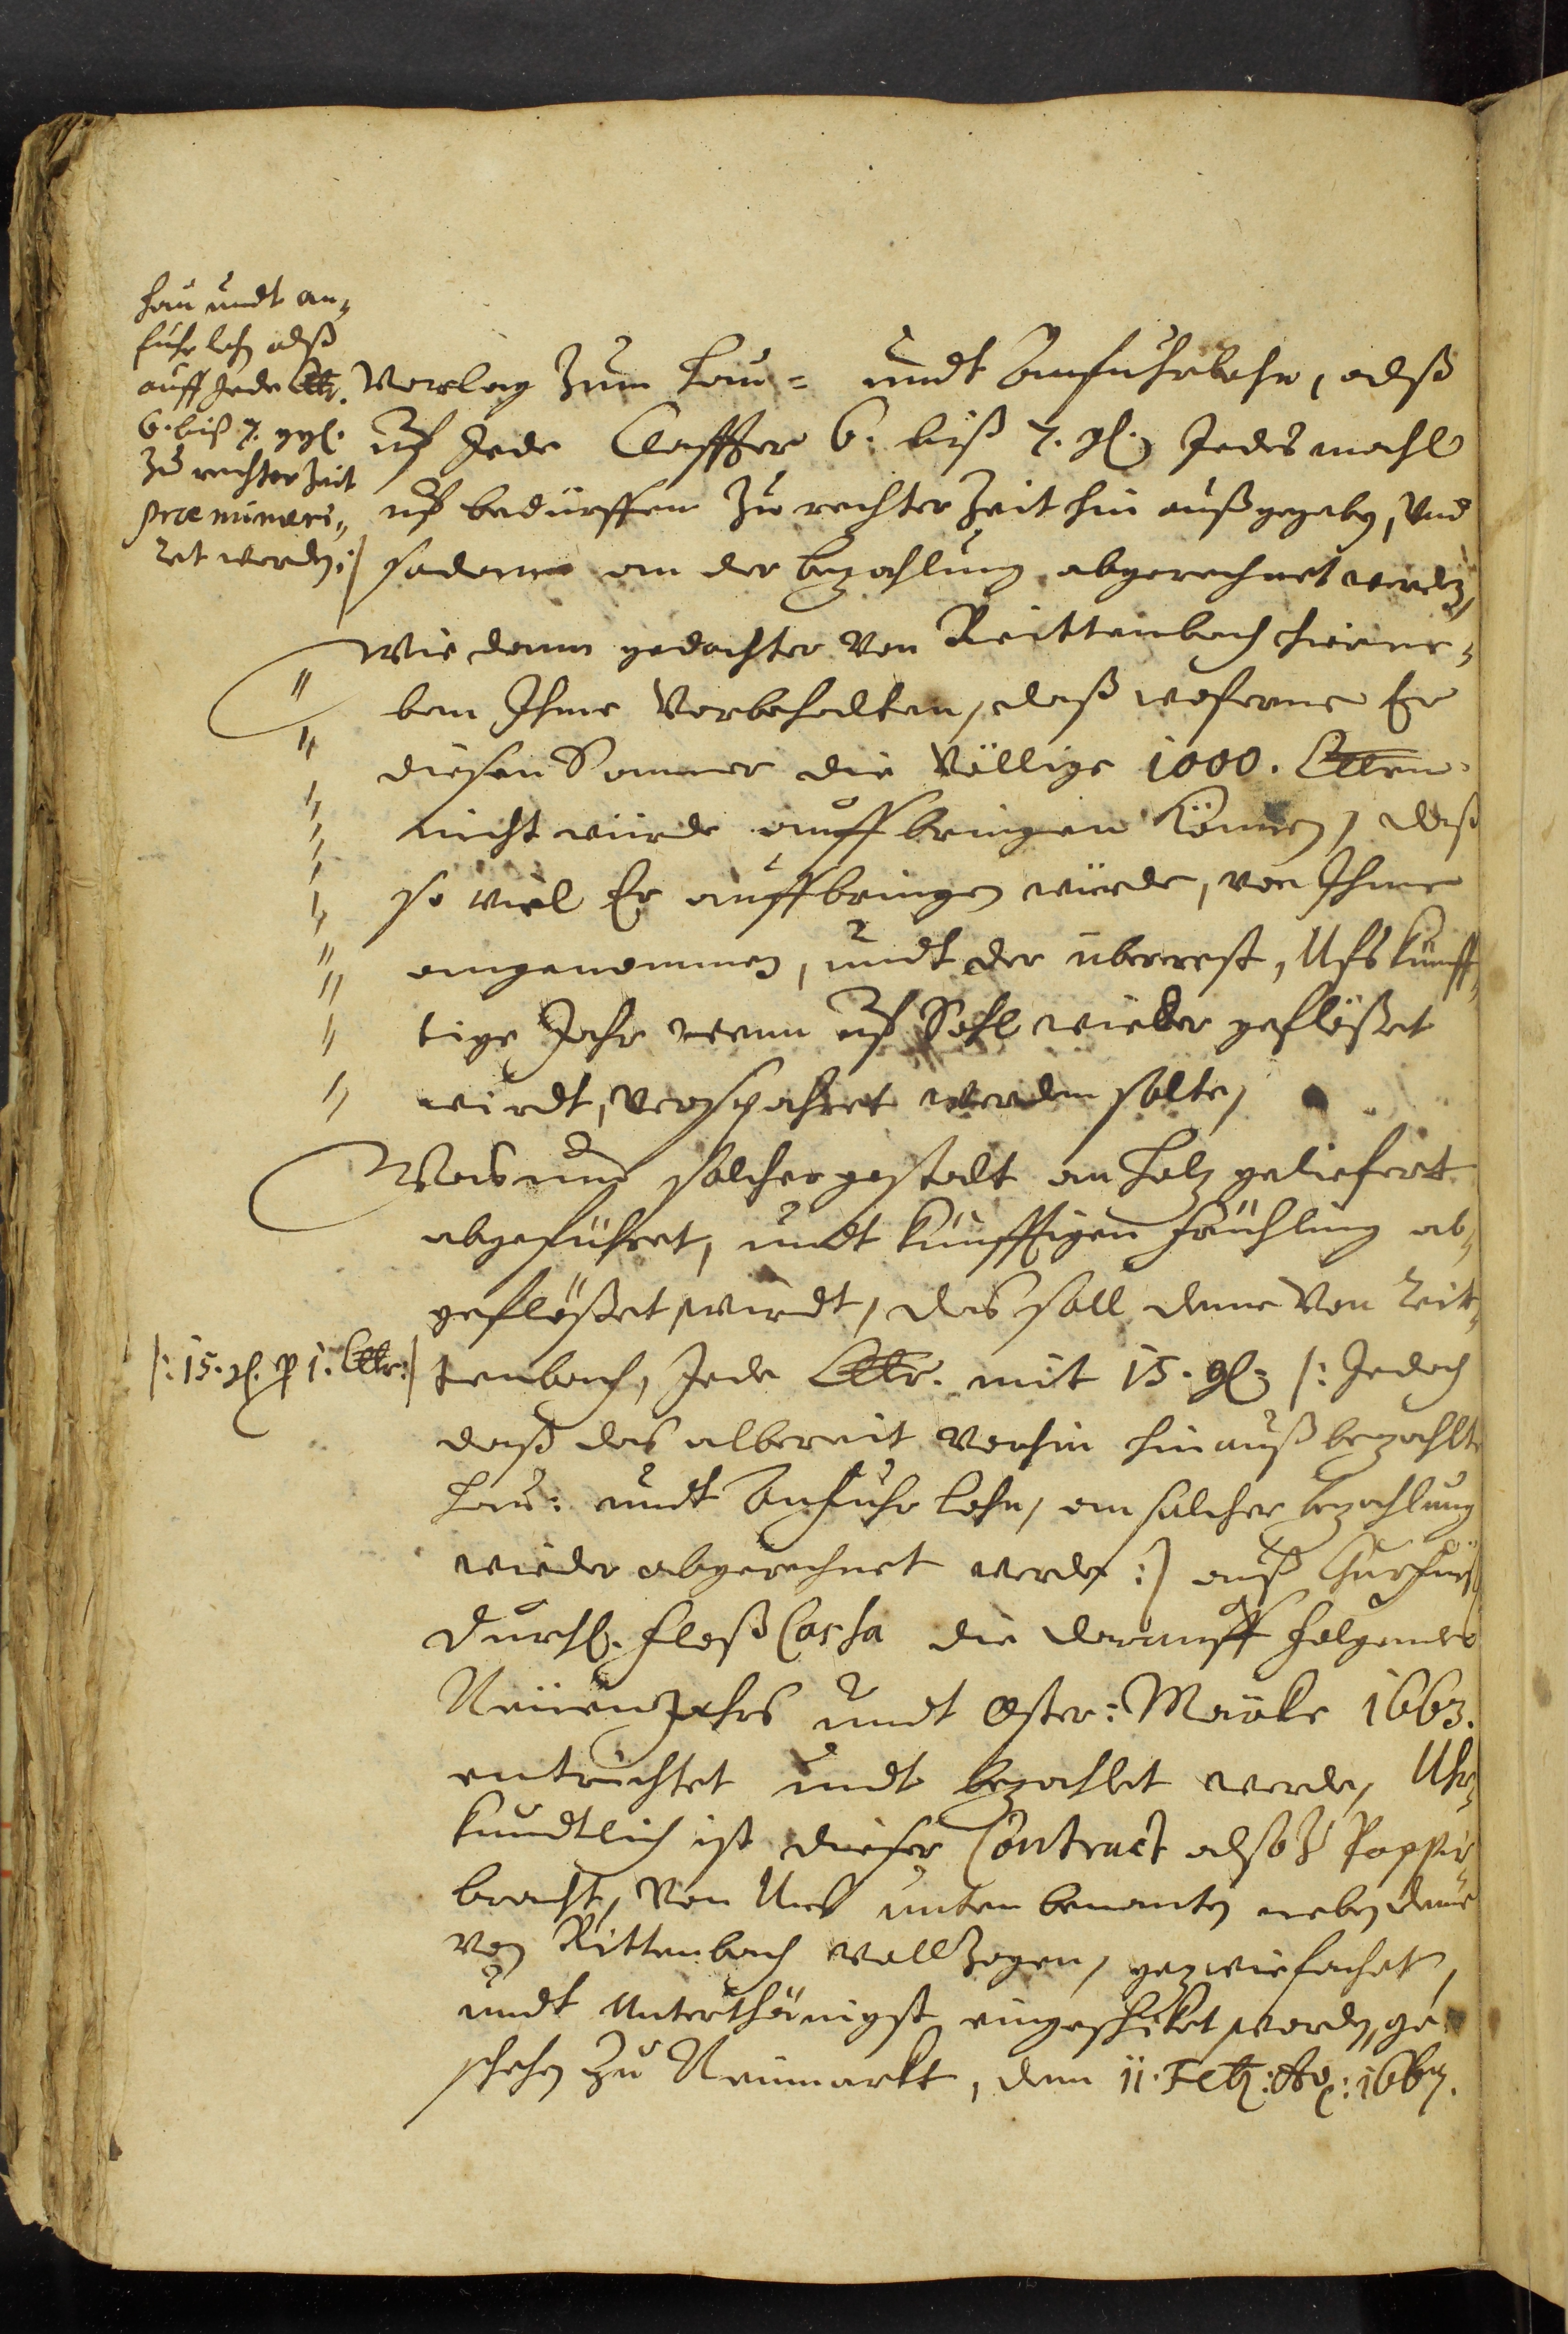 hau undt an=
fuhrlohn alß
auff Jede Clftr.
6. biß 7. ggl.
zu rechter Zeit
prænumeri=
ret werden :/
Vorlag zum Hau= undt Anfuhrlohn, alß
uf Jede Claffter 6. biß 7. gl. Jedes mahl
uf bedürffen zu rechter Zeit hin außgegeben, und
sodann an der bezahlung abgerechnet werden,
Wie dann gedachter von Reittenbach hierne=
ben Ihme Vorbehalten, daß woferne Er
diesen Sommer die Völlige 1000. Clftern
nicht würde auffbringen können, daß
so viel Er auffbringen würde, von Ihme
angenommen, undt der überrest, Ufs künff=
tige Jahr wenn uf Sohl wieder geflößet
wirdt, verspahret werden solte,
Was nun solcher gestalt an Holz geliefert
abgeführet, undt künfftigen Frühling ab=
geflößet wirdt, das soll deme von Reit=
/: 15. gl. p 1. Clftr :/
tenbach, Jede Clftr. mit 15. gl. /: Jedoch
daß das albereit vorhin hinauß bezahlte
Hau: undt Anfuhr lohn, an solcher bezahlung
wieder abgerechnet werde :/ auß Churfürstl
Durchl. Floß Cassa die darauff folgendes
Neuen Jahrs undt Oster: Märkte 1663.
entrichtet undt bezahlet werde, Uhr=
kundtlich ist dieser Contract alßo Pappir
bracht, von Uns unten benanten neben deme
von Rittenbach vollzogen, gezwiefachet,
undt Unterthänigst eingeschiket worden, ge=
schehen zu Neumarkt, den 11. Feb: